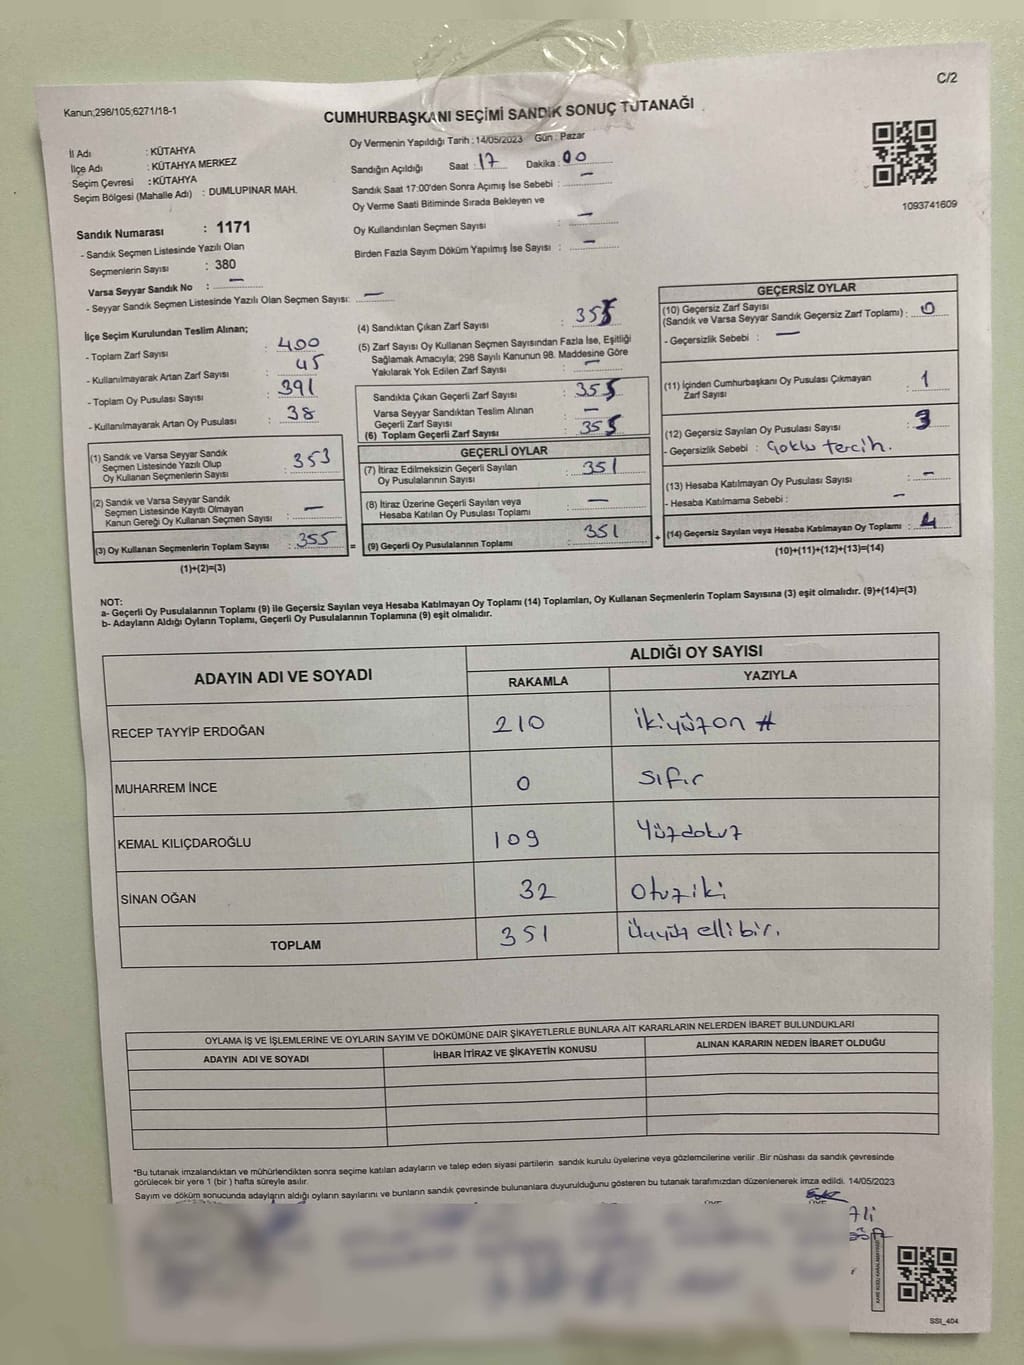 C/2
Kanun;298/105;6271/18-1
CUMHURBAŞKANI SEÇİMİ SANDIK SONUÇ TUTANAĞI
Oy Vermenin Yapıldığı Tarih : 14/05/2023 Gün : Pazar
İl Adı : KÜTAHYA
İlçe Adı : KÜTAHYA MERKEZ
Seçim Çevresi : KÜTAHYA
Seçim Bölgesi (Mahalle Adı) : DUMLUPINAR MAH.
Sandığın Açıldığı Saat : 17 Dakika : 00
Sandık Saat 17:00'den Sonra Açımış İse Sebebi : —
Oy Verme Saati Bitiminde Sırada Bekleyen ve
Oy Kullandırılan Seçmen Sayısı —
Birden Fazla Sayım Döküm Yapılmış İse Sayısı : —
1093741609
Sandık Numarası : 1171
- Sandık Seçmen Listesinde Yazılı Olan
Seçmenlerin Sayısı : 380
Varsa Seyyar Sandık No : —
- Seyyar Sandık Seçmen Listesinde Yazılı Olan Seçmen Sayısı: —
İlçe Seçim Kurulundan Teslim Alınan;
- Toplam Zarf Sayısı : 400
- Kullanılmayarak Artan Zarf Sayısı : 45
- Toplam Oy Pusulası Sayısı : 391
- Kullanılmayarak Artan Oy Pusulası : 38
(1) Sandık ve Varsa Seyyar Sandık
Seçmen Listesinde Yazılı Olup
Oy Kullanan Seçmenlerin Sayısı : 353
(2) Sandık ve Varsa Seyyar Sandık
Seçmen Listesinde Kayıtlı Olmayan
Kanun Gereği Oy Kullanan Seçmen Sayısı : —
(3) Oy Kullanan Seçmenlerin Toplam Sayısı : 355 =
(1)+(2)=(3)
(4) Sandıktan Çıkan Zarf Sayısı : 355
(5) Zarf Sayısı Oy Kullanan Seçmen Sayısından Fazla İse, Eşitliği
Sağlamak Amacıyla; 298 Sayılı Kanunun 98. Maddesine Göre
Yakılarak Yok Edilen Zarf Sayısı : —
Sandıkta Çıkan Geçerli Zarf Sayısı : 355
Varsa Seyyar Sandıktan Teslim Alınan
Geçerli Zarf Sayısı : —
(6) Toplam Geçerli Zarf Sayısı : 355
GEÇERLİ OYLAR
(7) İtiraz Edilmeksizin Geçerli Sayılan
Oy Pusulalarının Sayısı : 351
(8) İtiraz Üzerine Geçerli Sayılan veya
Hesaba Katılan Oy Pusulası Toplamı : —
(9) Geçerli Oy Pusulalarının Toplamı : 351 +
GEÇERSİZ OYLAR
(10) Geçersiz Zarf Sayısı
(Sandık ve Varsa Seyyar Sandık Geçersiz Zarf Toplamı) : 0
- Geçersizlik Sebebi : —
(11) İçinden Cumhurbaşkanı Oy Pusulası Çıkmayan
Zarf Sayısı : 1
(12) Geçersiz Sayılan Oy Pusulası Sayısı : 3
- Geçersizlik Sebebi : Çoklu tercih.
(13) Hesaba Katılmayan Oy Pusulası Sayısı : —
- Hesaba Katılmama Sebebi : —
(14) Geçersiz Sayılan veya Hesaba Katılmayan Oy Toplamı : 4
(10)+(11)+(12)+(13)=(14)
NOT:
a- Geçerli Oy Pusulalarının Toplamı (9) ile Geçersiz Sayılan veya Hesaba Katılmayan Oy Toplamı (14) Toplamları, Oy Kullanan Seçmenlerin Toplam Sayısına (3) eşit olmalıdır. (9)+(14)=(3)
b- Adayların Aldığı Oyların Toplamı, Geçerli Oy Pusulalarının Toplamına (9) eşit olmalıdır.
ADAYIN ADI VE SOYADI ALDIĞI OY SAYISI
RAKAMLA YAZIYLA
RECEP TAYYİP ERDOĞAN 210 ikiyüzon #
MUHARREM İNCE 0 sıfır
KEMAL KILIÇDAROĞLU 109 Yüzdokuz
SİNAN OĞAN 32 Otuziki
TOPLAM 351 Üçyüz ellibir.
OYLAMA İŞ VE İŞLEMLERİNE VE OYLARIN SAYIM VE DÖKÜMÜNE DAİR ŞİKAYETLERLE BUNLARA AİT KARARLARIN NELERDEN İBARET BULUNDUKLARI
ADAYIN ADI VE SOYADI İHBAR İTİRAZ VE ŞİKAYETİN KONUSU ALINAN KARARIN NEDEN İBARET OLDUĞU
*Bu tutanak imzalandıktan ve mühürlendikten sonra seçime katılan adayların ve talep eden siyasi partilerin sandık kurulu üyelerine veya gözlemcilerine verilir .Bir nüshası da sandık çevresinde
görülecek bir yere 1 (bir ) hafta süreyle asılır.
Sayım ve döküm sonucunda adayların aldığı oyların sayılarını ve bunların sandık çevresinde bulunanlara duyurulduğunu gösteren bu tutanak tarafımızdan düzenlenerek imza edildi. 14/05/2023
SSI_404